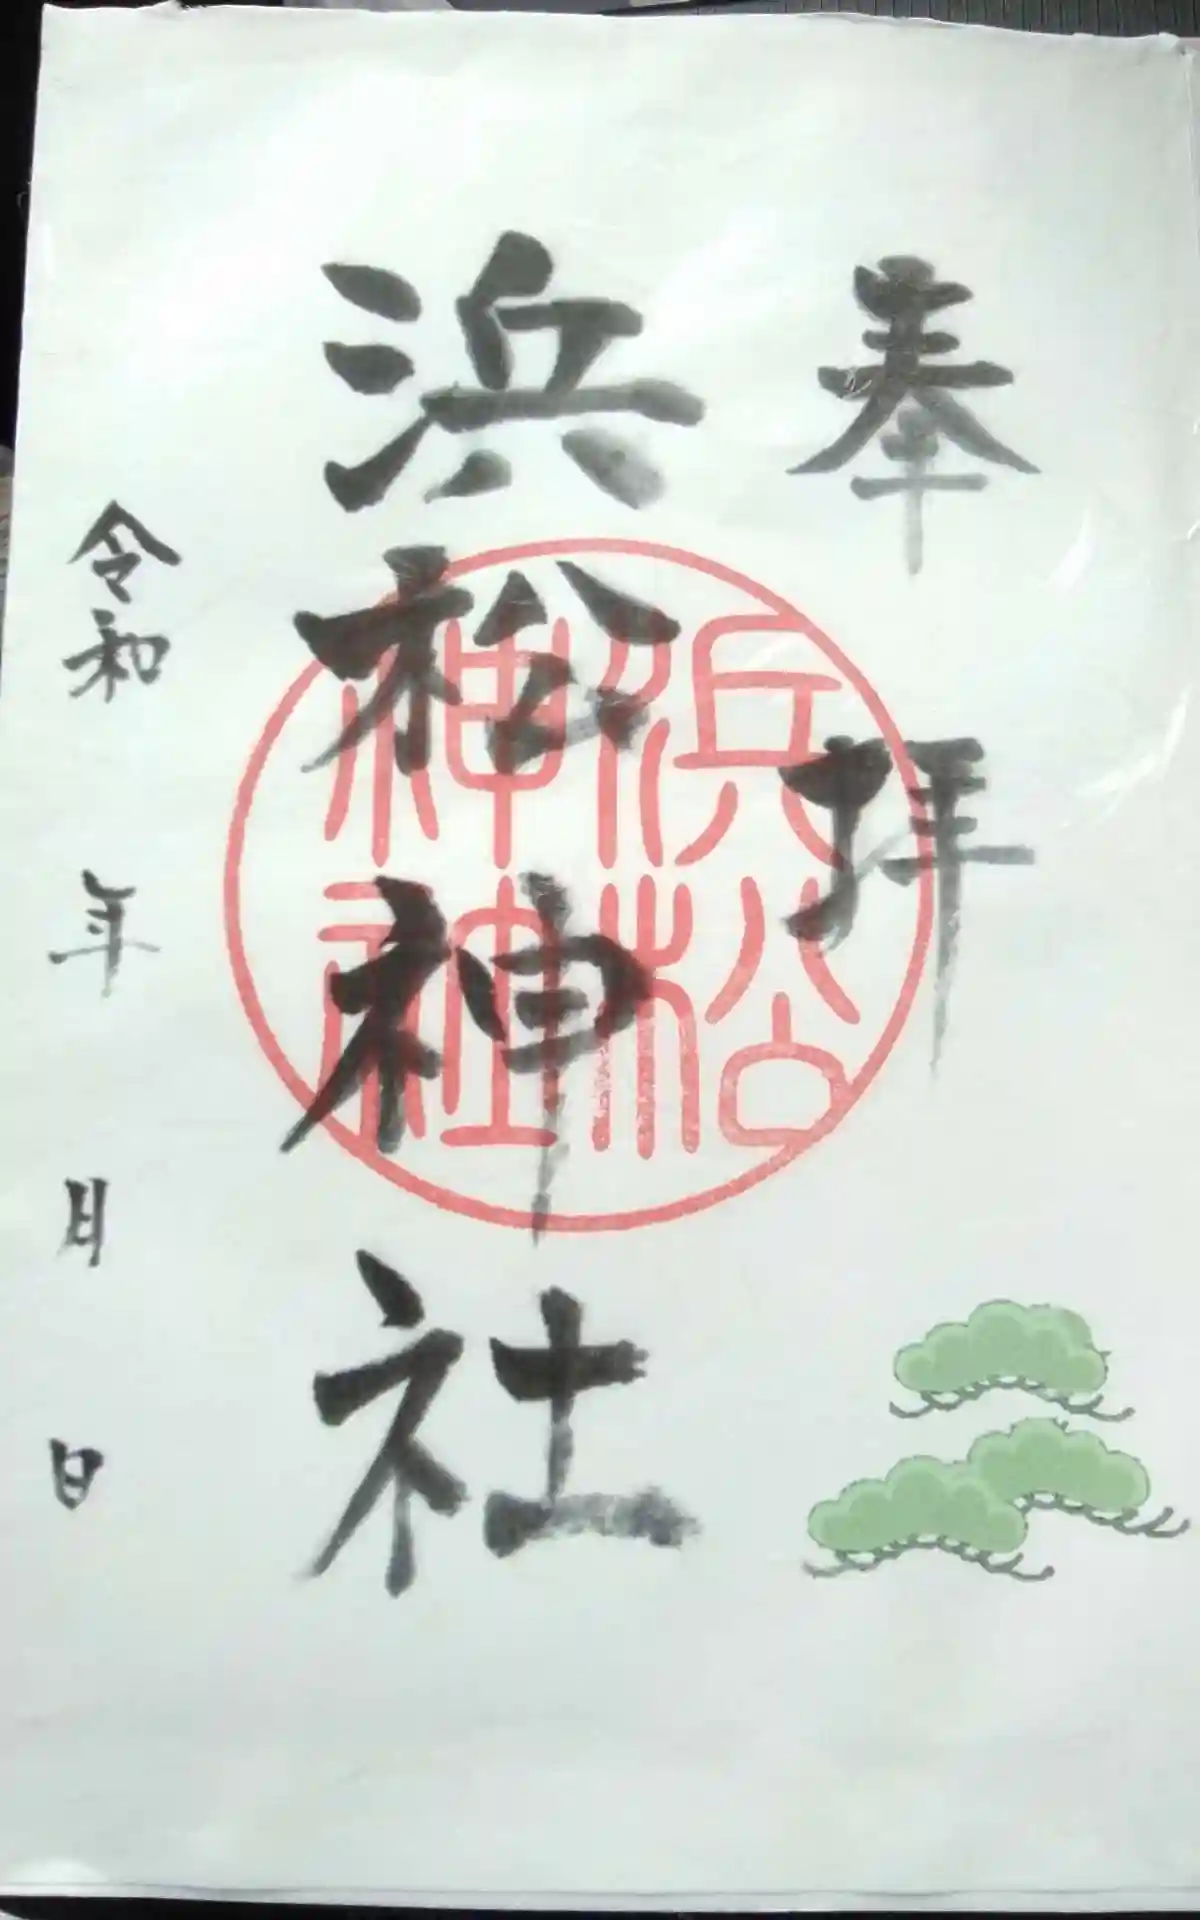 奉拝
浜松神社
浜松
神社
令和 年 月 日